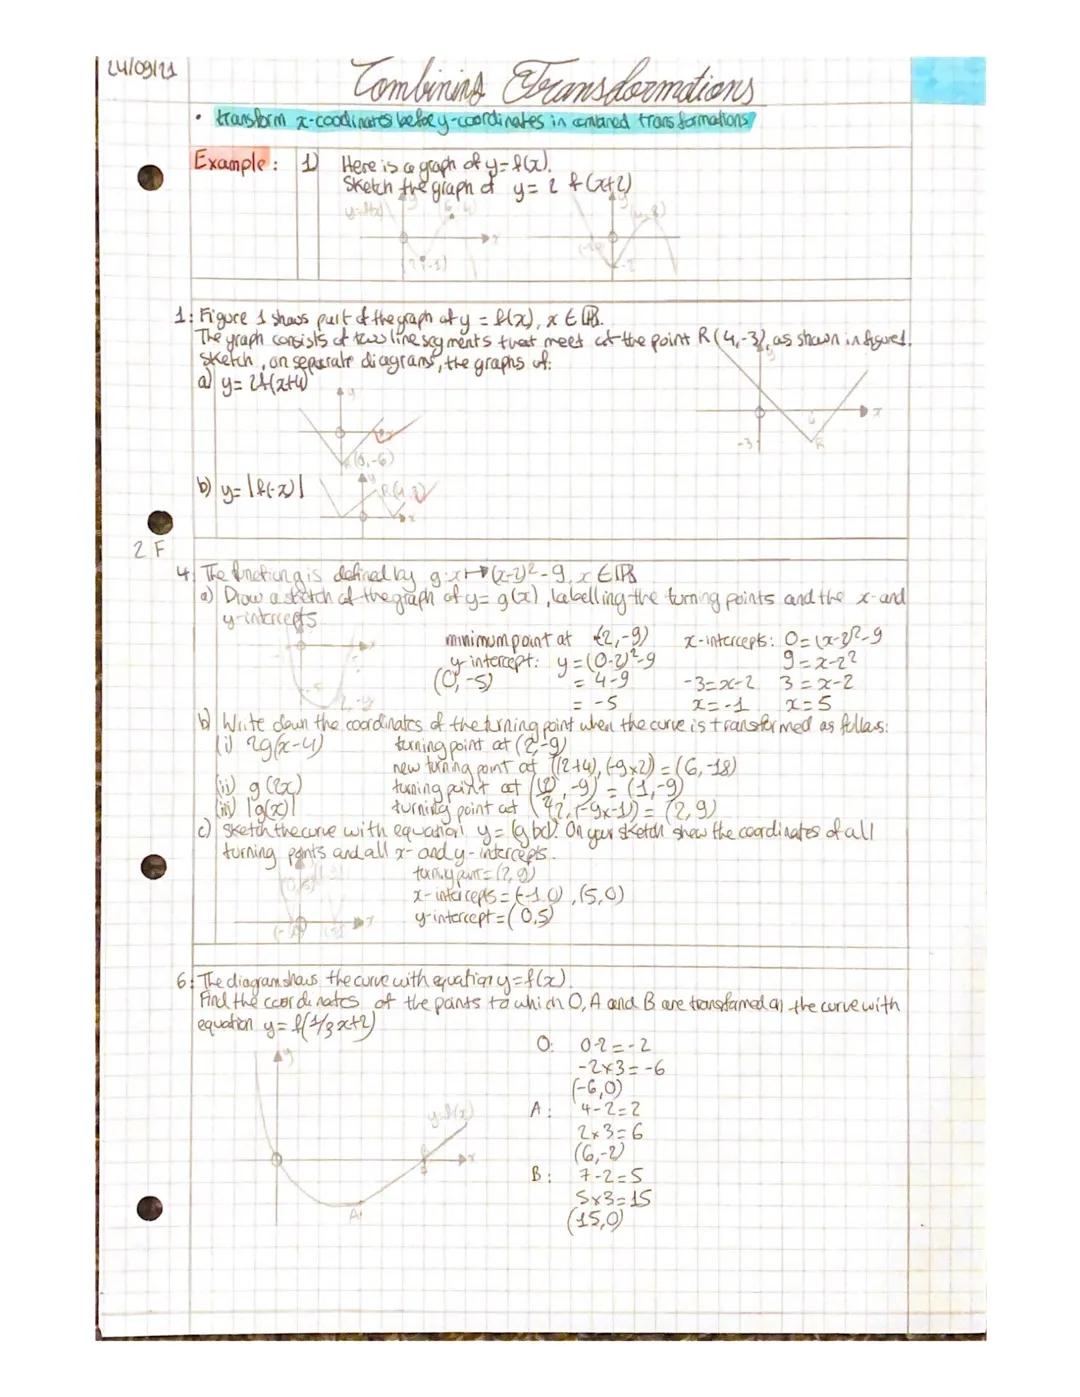 24/09/21
Combining Transformations
• transform x-coordinates before y-coordinates in combined transformations
Example: 1) Here is a graph of y=f(x).
Sketch the graph of y= 2 f(x+2)
y=f(x)
y
(6,4)
x
(2,-1)
y
(4,8)
-2
1: Figure 1 shows part of the graph of y = f(x), x ∈ ℝ.
The graph consists of two line segments that meet at the point R(4,-3), as shown in figure 1.
Sketch, on separate diagrams, the graphs of:
a) y= 2f(x+4)
y
x
R(0,-6)
y
x
-3
R
b) y= |f(-x)|
y
x
2 F
4: The function g is defined by g:x↦(x-2)²-9, x ∈ ℝ
a) Draw a sketch of the graph of y= g(x), labelling the turning points and the x- and
y-intercepts
x
-5
(2,-9)
minimum point at (2,-9)
y-intercept: y=(0-2)²-9
(0,-5) = 4-9
= -5
x-intercepts: 0=(x-2)²-9
9=x-2²
-3=x-2 3=x-2
x=-1 x=5
b) Write down the coordinates of the turning point when the curve is transformed as follows:
(i) 2g(x-4) turning point at (2,-9)
new turning point at ((2+4),(-9x2)) = (6,-18)
(ii) g(2x) turning point at (2/2,-9) = (1,-9)
(iii) |g(x)| turning point at (2,(-9x-1)) = (2,9)
c) Sketch the curve with equation y= |g(x)|. On your sketch show the coordinates of all
turning points and all x- and y-intercepts.
turning point=(2,9)
x-intercepts=(-1,0),(5,0)
y-intercept=(0,5)
(0,5)
x
6: The diagram shows the curve with equation y=f(x).
Find the coordinates of the points to which O, A and B are transformed on the curve with
equation y= f(1/3x+2)
y
y=f(x)
B
x
A
O: 0-2=-2
-2x3=-6
(-6,0)
A: 4-2=2
2x3=6
(6,-2)
B: 7-2=5
5x3=15
(15,0)